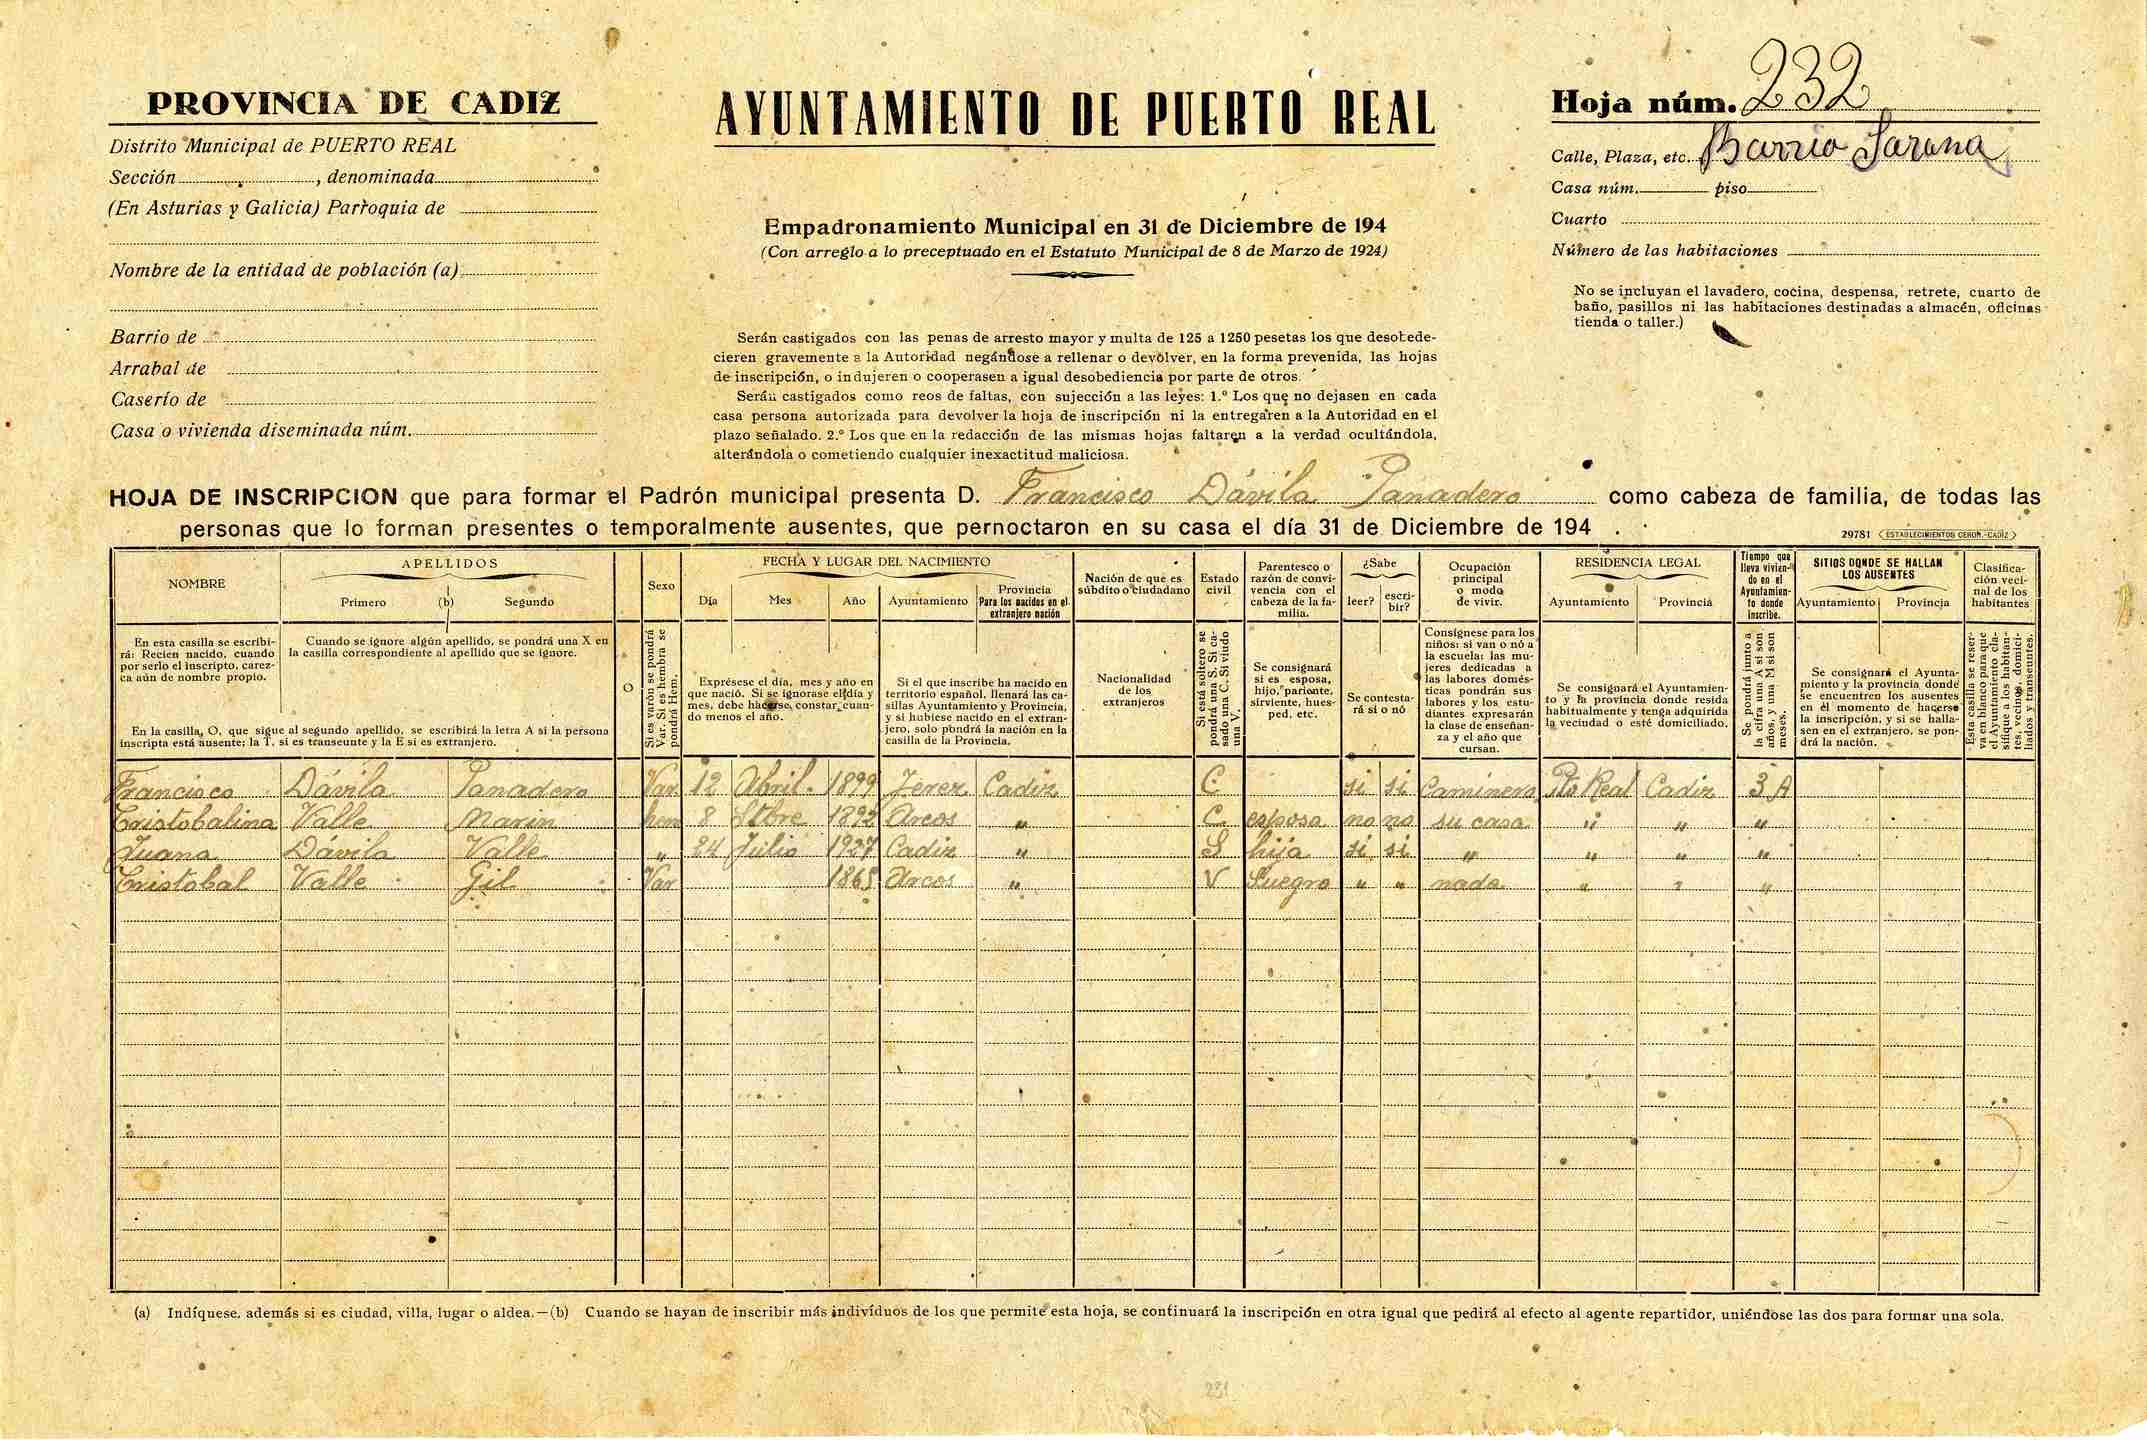 PROVINCIA DE CADIZ
Distrito Municipal de PUERTO REAL
Sección , denominada
(En Asturias y Galicia) Parroquia de
Nombre de la entidad de población (a)
Barrio de
Arrabal de
Caserío de
Casa o vivienda diseminada núm.
AYUNTAMIENTO DE PUERTO REAL
Empadronamiento Municipal en 31 de Diciembre de 194
(Con arreglo a lo preceptuado en el Estatuto Municipal de 8 de Marzo de 1924)
Serán castigados con las penas de arresto mayor y multa de 125 a 1250 pesetas los que desobede-
cieren gravemente a la Autoridad negándose a rellenar o devolver, en la forma prevenida, las hojas
de inscripción, o indujeren o cooperasen a igual desobediencia por parte de otros.
Serán castigados como reos de faltas, con sujección a las leyes: 1.º Los que no dejasen en cada
casa persona autorizada para devolver la hoja de inscripción ni la entregaren a la Autoridad en el
plazo señalado. 2.º Los que en la redacción de las mismas hojas faltaren a la verdad ocultándola,
alterándola o cometiendo cualquier inexactitud maliciosa.
Hoja núm. 232
Calle, Plaza, etc. Barrio Jarana
Casa núm. piso
Cuarto
Número de las habitaciones
No se incluyan el lavadero, cocina, despensa, retrete, cuarto de
baño, pasillos ni las habitaciones destinadas a almacén, oficinas
tienda o taller.)
HOJA DE INSCRIPCION que para formar el Padrón municipal presenta D. Francisco Dávila Panadero como cabeza de familia, de todas las
personas que lo forman presentes o temporalmente ausentes, que pernoctaron en su casa el día 31 de Diciembre de 194 .
29781 ESTABLECIMIENTOS CERÓN.-CADIZ
NOMBRE
APELLIDOS
Primero (b) Segundo
Sexo
FECHA Y LUGAR DEL NACIMIENTO
Día Mes Año Ayuntamiento
Provincia
Para los nacidos en el
extranjero nación
Nación de que es
súbdito o ciudadano
Estado
civil
Parentesco o
razón de convi-
vencia con el
cabeza de la fa-
milia.
¿Sabe
leer? escri-
bir?
Ocupación
principal
o modo
de vivir.
RESIDENCIA LEGAL
Ayuntamiento Provincia
Tiempo que
lleva vivien-
do en el
Ayuntamien-
to donde
inscribe.
SITIOS DONDE SE HALLAN
LOS AUSENTES
Ayuntamiento Provincia
Clasifica-
ción veci-
nal de los
habitantes
En esta casilla se escribi-
rá: Recien nacido, cuando
por serlo el inscripto, carez-
ca aún de nombre propio.
Cuando se ignore algún apellido, se pondrá una X en
la casilla correspondiente al apellido que se ignore.
En la casilla, O, que sigue al segundo apellido, se escribirá la letra A si la persona
inscripta está ausente; la T, si es transeunte y la E si es extranjero.
O
Si es varón se pondrá
Var. Si es hembra se
pondrá Hem.
Exprésese el día, mes y año en
que nació. Si se ignorase el día y
mes, debe hacerse, constar, cuan-
do menos el año.
Si el que inscribe ha nacido en
territorio español, llenará las ca-
sillas Ayuntamiento y Provincia,
y si hubiese nacido en el extran-
jero, solo pondrá la nación en la
casilla de la Provincia.
Nacionalidad
de los
extranjeros
Si está soltero se
pondrá una S. Si ca-
sado una C. Si viudo
una V.
Se consignará
si es esposa,
hijo, pariente,
sirviente, hues-
ped, etc.
Se contesta-
rá si o nó
Consígnese para los
niños: si van o nó a
la escuela: las mu-
jeres dedicadas a
las labores domés-
ticas pondrán sus
labores y los estu-
diantes expresarán
la clase de enseñan-
za y el año que
cursan.
Se consignará el Ayuntamien-
to y la provincia donde resida
habitualmente y tenga adquirida
la veciudad o esté domiciliado.
Se pondrá junto a
la cifra una A si son
años, y una M si son
meses.
Se consignará el Ayunta-
miento y la provincia donde
se encuentren los ausentes
en el momento de hacerse
la inscripción, y si se halla-
sen en el extranjero, se pon-
drá la nación.
Esta casilla se reser-
va en blanco para que
el Ayuntamiento cla-
sifique a los habitan-
tes, vecinos, domici-
liados y transeuntes.
Francisco Dávila Panadero Var 12 Abril 1899 Jerez Cadiz C si si Caminero Pto Real Cadiz 3 A
Cristobalina Valle Marin hem 8 Stbre 1892 Arcos " C esposa no no su casa " " "
Juana Dávila Valle " 24 Julio 1927 Cadiz " S hija si si " " " "
Cristobal Valle Gil Var 1865 Arcos " V Suegro " " nada " " "
(a) Indíquese, además si es ciudad, villa, lugar o aldea.—(b) Cuando se hayan de inscribir más indivíduos de los que permite esta hoja, se continuará la inscripción en otra igual que pedirá al efecto al agente repartidor, uniéndose las dos para formar una sola.
231